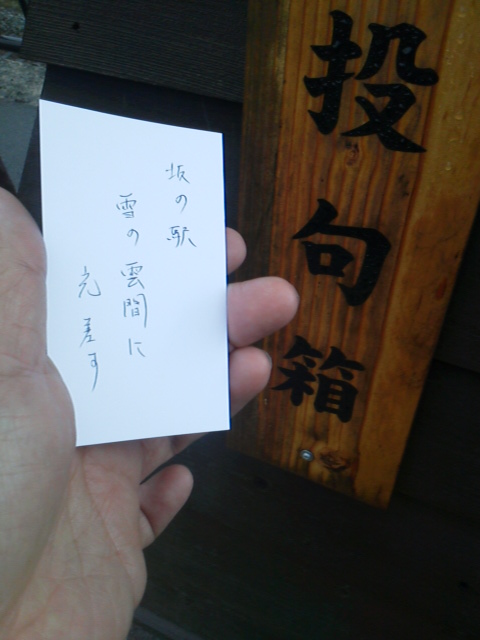 投句箱
坂の駅
雪の雲間に
光差す